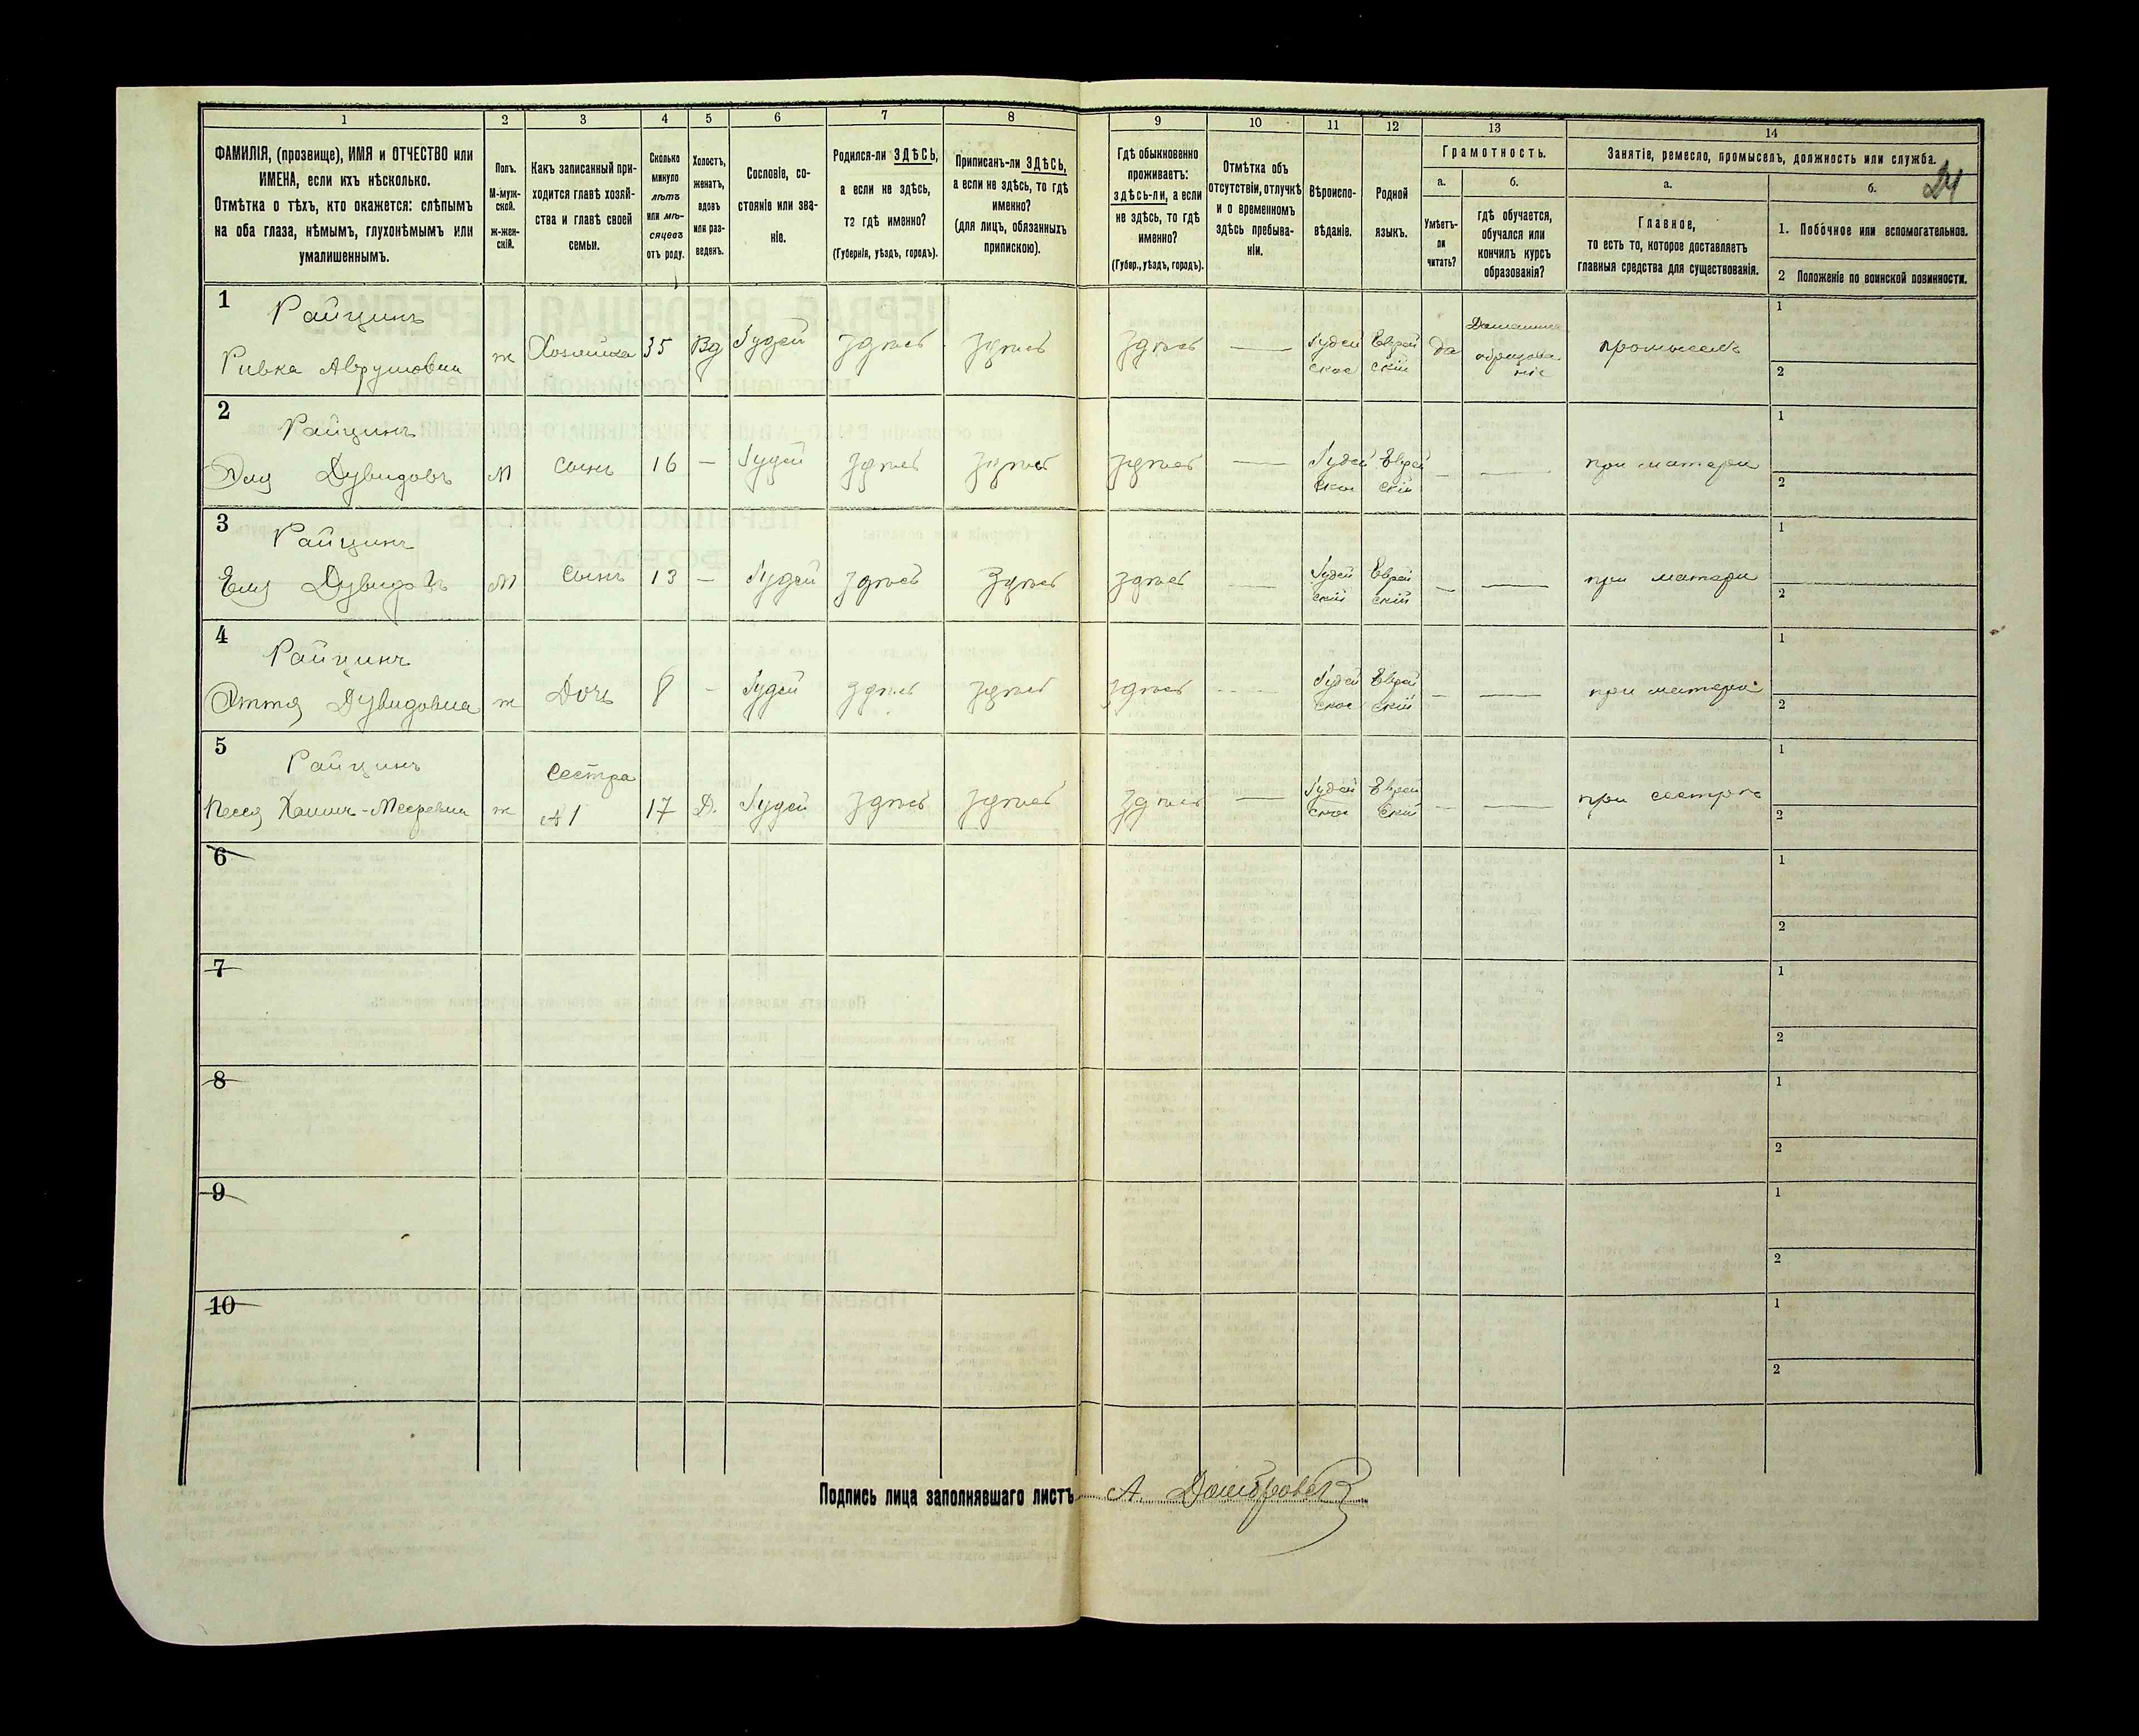 1 2 3 4 5 6 7 8 9 10 11 12 13 14
ФАМИЛІЯ, (прозвище), ИМЯ и ОТЧЕСТВО или
ИМЕНА, если ихъ нѣсколько.
Отмѣтка о тѣхъ, кто окажется: слѣпымъ
на оба глаза, нѣмымъ, глухонѣмымъ или
умалишеннымъ.
Полъ.
М-муж-
ской.
ж-жен-
скій.
Какъ записанный при-
ходится главѣ хозяй-
ства и главѣ своей
семьи.
Сколько
минуло
лѣтъ
или мѣ-
сяцевъ
отъ роду.
Холостъ,
женатъ,
вдовъ
или раз-
веденъ.
Сословіе, со-
стояніе или зва-
ніе.
Родился-ли ЗДѢСЬ,
а если не здѣсь,
то гдѣ именно?
(Губернія, уѣздъ, городъ).
Приписанъ-ли ЗДѢСЬ,
а если не здѣсь, то гдѣ
именно?
(для лицъ, обязанныхъ
припискою).
Гдѣ обыкновенно
проживаетъ:
здѣсь-ли, а если
не здѣсь, то гдѣ
именно?
(Губер., уѣздъ, городъ).
Отмѣтка объ
отсутствіи, отлучкѣ
и о временномъ
здѣсь пребыва-
ніи.
Вѣроиспо-
вѣданіе.
Родной
языкъ.
Грамотность.
а.
Умѣетъ-
ли
читать?
б.
гдѣ обучается,
обучался или
кончилъ курсъ
образованія?
Занятіе, ремесло, промыселъ, должность или служба.
а.
Главное,
то есть то, которое доставляетъ
главныя средства для существованія.
б.
24
1. Побочное или вспомогательное.
2 Положеніе по воинской повинности.
1 Райцинъ
Ривка Аврумовна ж Хозяйка 35 Вд Іудей здѣсь здѣсь здѣсь — Іудей Еврей да Домашнее образова промыселъ 1
ское скій ніе 2
2 Райцинъ
Дувидовъ М сынъ 16 — Іудей здѣсь здѣсь здѣсь — Іудей Еврей — — при матери 1
ское скій 2
3 Райцинъ
Еля М сынъ 13 — Іудей здѣсь здѣсь здѣсь — Іудей Еврей — — при матери 1
скій скій 2
4 Райцинъ
Дувидовна ж Дочь 8 - Іудей здѣсь здѣсь здѣсь — Іудей Еврей — — при матери 1
ское скій 2
5 Райцинъ сестра
Песся ж №1 17 Д. Іудей здѣсь здѣсь здѣсь — Іудей Еврей — — при сестрѣ 1
ское скій 2
6 1
2
7 1
2
8 1
2
9 1
2
10 1
2
Подпись лица заполнявшаго листъ А.